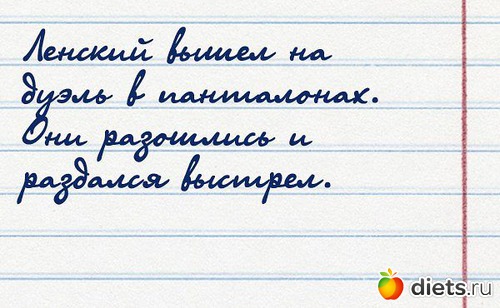 Ленский вышел на
дуэль в панталонах.
Они разошлись и
раздался выстрел.
diets.ru